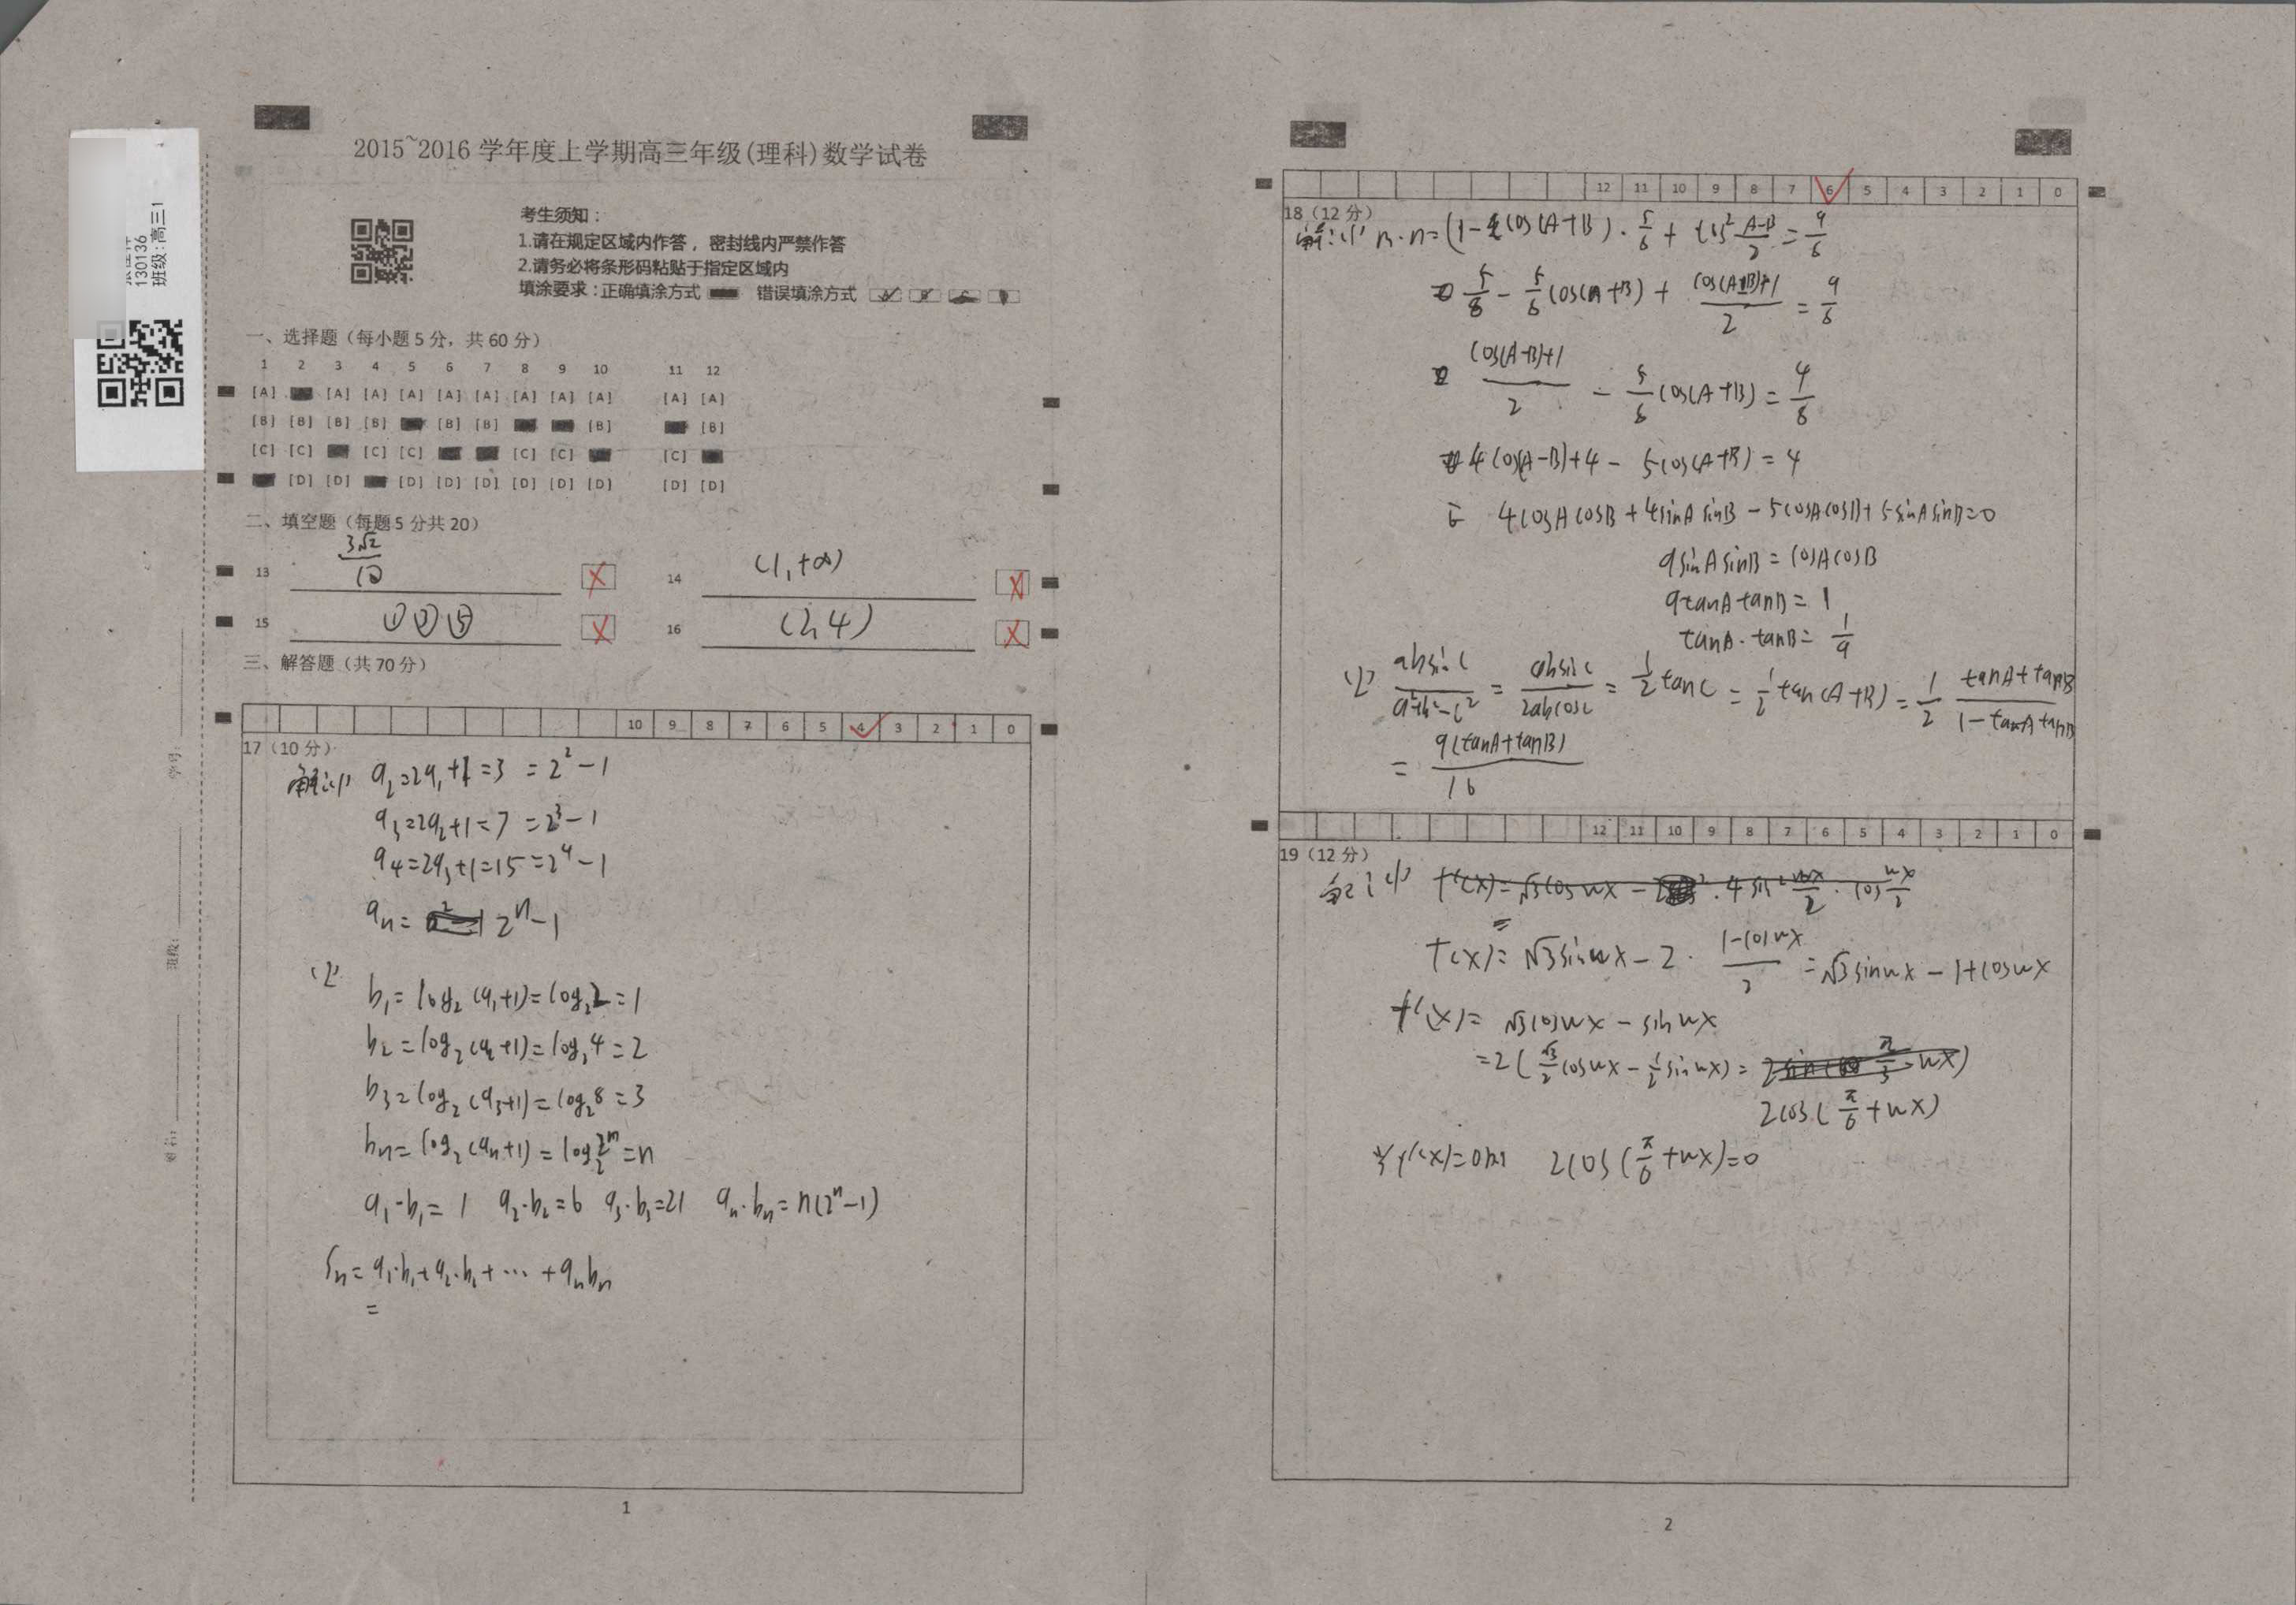 130136
班级:高三1
2015~2016 学年度上学期高三年级(理科)数学试卷
考生须知：
1.请在规定区域内作答，密封线内严禁作答
2.请务必将条形码粘贴于指定区域内
填涂要求：正确填涂方式 错误填涂方式
一、选择题（每小题 5 分，共 60 分）
1 2 3 4 5 6 7 8 9 10 11 12
[A] [A] [A] [A] [A] [A] [A] [A] [A] [A] [A]
[B] [B] [B] [B] [B] [B] [B] [B]
[C] [C] [C] [C] [C] [C] [C]
[D] [D] [D] [D] [D] [D] [D] [D] [D] [D]
二、填空题（每题 5 分共 20）
13 3√2/10 14 (1,+∞)
15 ①②⑤ 16 (2,4)
三、解答题（共 70 分）
10 9 8 7 6 5 4 3 2 1 0
17（10 分）
解:(1) a₂=2a₁+1=3=2²-1
a₃=2a₂+1=7=2³-1
a₄=2a₃+1=15=2⁴-1
aₙ=2ⁿ-1
(2)
b₁=log₂(a₁+1)=log₂2=1
b₂=log₂(a₂+1)=log₂4=2
b₃=log₂(a₃+1)=log₂8=3
bₙ=log₂(aₙ+1)=log₂2ⁿ=n
a₁·b₁=1 a₂·b₂=6 a₃·b₃=21 aₙ·bₙ=n(2ⁿ-1)
Sₙ=a₁·b₁+a₂·b₂+⋯+aₙbₙ
=
1
学号:
班级:
姓名:
12 11 10 9 8 7 6 5 4 3 2 1 0
18（12 分）
解:(1) m·n=(1-cos(A+B))·5/8+cos²(A-B)/2=9/8
5/8-5/8cos(A+B)+(cos(A-B)+1)/2=9/8
(cos(A-B)+1)/2-5/8cos(A+B)=4/8
4cos(A-B)+4-5cos(A+B)=4
4cosAcosB+4sinAsinB-5cosAcosB+5sinAsinB=0
9sinAsinB=cosAcosB
9tanAtanB=1
tanA·tanB=1/9
(2) absinC/(a²+b²-c²)=absinC/(2abcosC)=1/2tanC=1/2tan(A+B)=1/2 (tanA+tanB)/(1-tanAtanB)
=9(tanA+tanB)/16
12 11 10 9 8 7 6 5 4 3 2 1 0
19（12 分）
解:(1)
f(x)=√3sinwx-2·(1-coswx)/2=√3sinwx-1+coswx
f'(x)=√3coswx-sinwx
=2(√3/2coswx-1/2sinwx)=
2cos(π/6+wx)
当f'(x)=0时 2cos(π/6+wx)=0
2